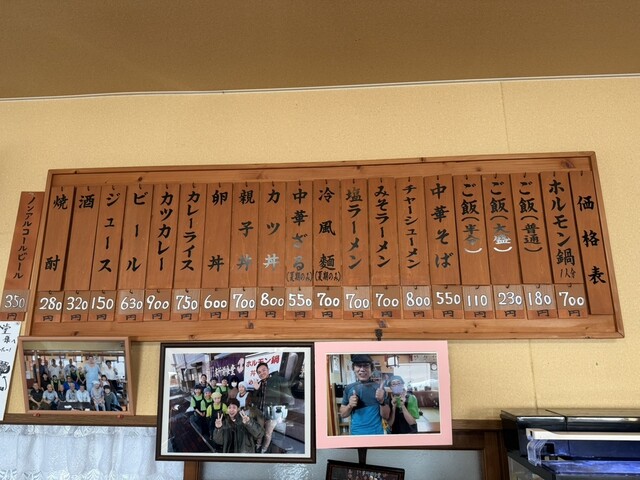 価格表
ホルモン鍋 1人分 700円
ご飯(普通) 180円
ご飯(大盛) 230円
ご飯(半分) 110円
中華そば 550円
チャーシューメン 800円
みそラーメン 700円
塩ラーメン 700円
冷風麺(夏期のみ) 700円
中華ざる(夏期のみ) 550円
カツ丼 800円
親子丼 700円
卵丼 600円
カレーライス 750円
カツカレー 900円
ビール 630円
ジュース 150円
酒 320円
焼酎 280円
ノンアルコールビール 350円
ホルモン鍋